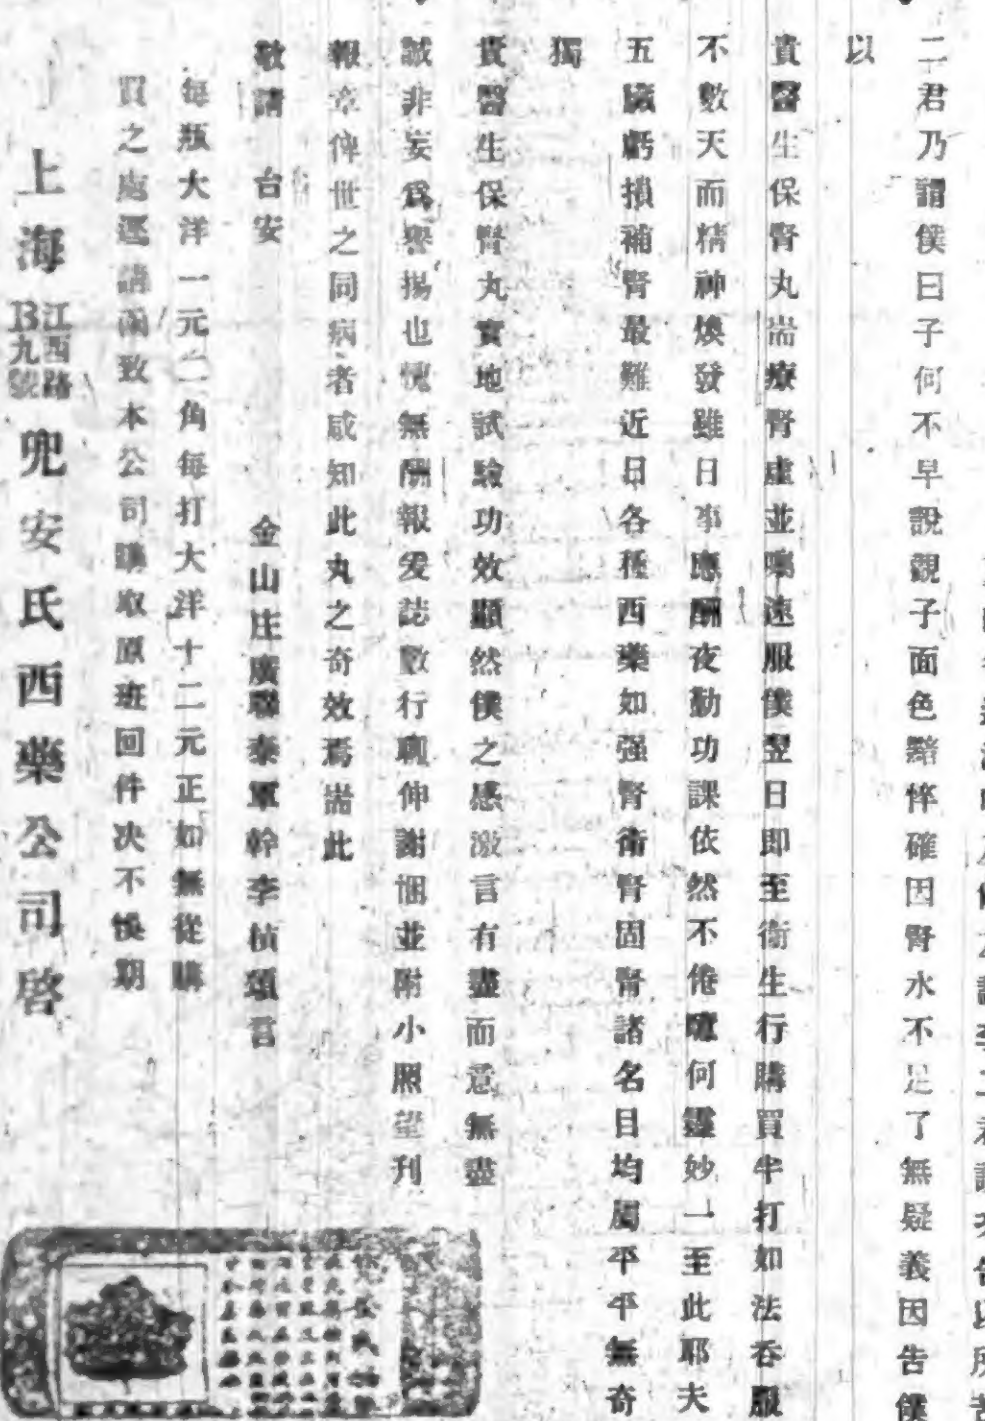 二君乃謂僕曰子何不早說觀子面色黯悴確因腎水不足了無疑義因告僕
以
貴醫生保腎丸耑療腎虛並囑速服僕翌日即至衛生行購買半打如法吞服
不數天而精神煥發雖日事應酬夜勤功課依然不倦噫何靈妙一至此耶夫
五臟虧損補腎最難近日各種西藥如强腎衛腎固腎諸名目均屬平平無奇
獨
貴醫生保腎丸實地試驗功效顯然僕之感激言有盡而意無盡
誠非妄爲譽揚也愧無酬報爰誌數行聊伸謝悃並附小照望刊
報章俾世之同病者咸知此丸之奇效焉耑此
敬請 台安 金山庄廣聯泰軍幹李楨頌言
每瓶大洋一元二角每打大洋十二元正如無從購
買之處逕請函致本公司購取原班回件决不悞期
上海江西路B九號兜安氏西藥公司啓